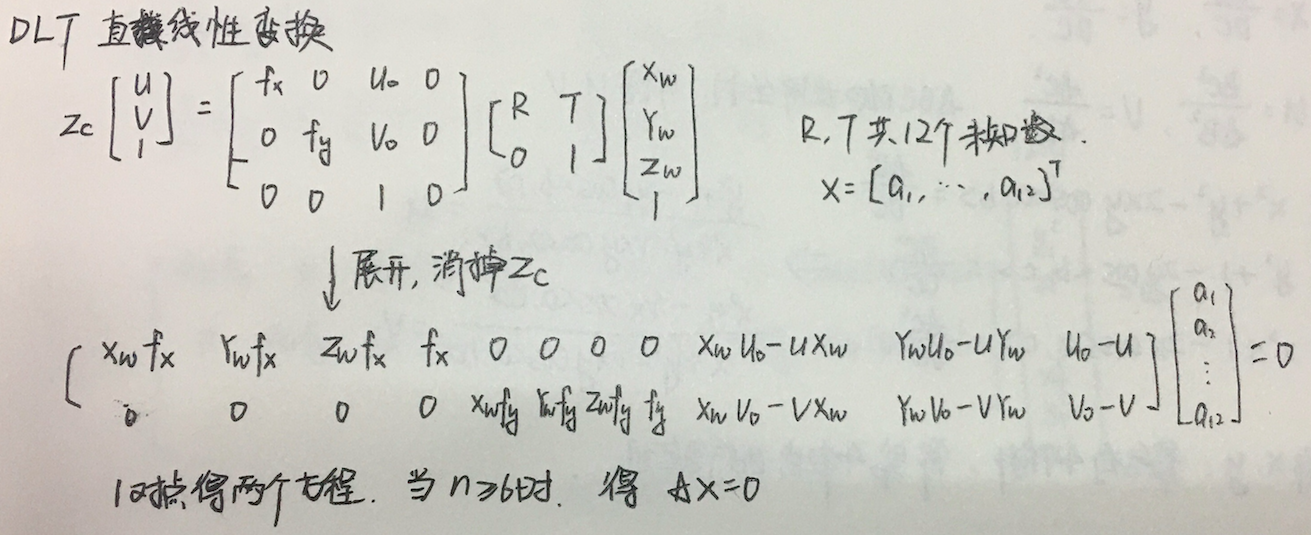 DLT 直接线性变换
Zc [U V 1] = [fx 0 u₀ 0; 0 fy V₀ 0; 0 0 1 0] [R T; 0 1] [Xw Yw Zw 1]
R,T共12个未知数.
X=[a₁, ⋯, a₁₂]ᵀ
↓展开,消掉Zc
[Xwfx Ywfx Zwfx fx 0 0 0 0 XwU₀-UXw YwU₀-UYw U₀-U; 0 0 0 0 Xwfy Ywfy Zwfy fy XwV₀-VXw YwV₀-VYw V₀-V] [a₁ a₂ ⋮ a₁₂] =0
1对点得两个方程. 当n≥6时. 得 AX=0